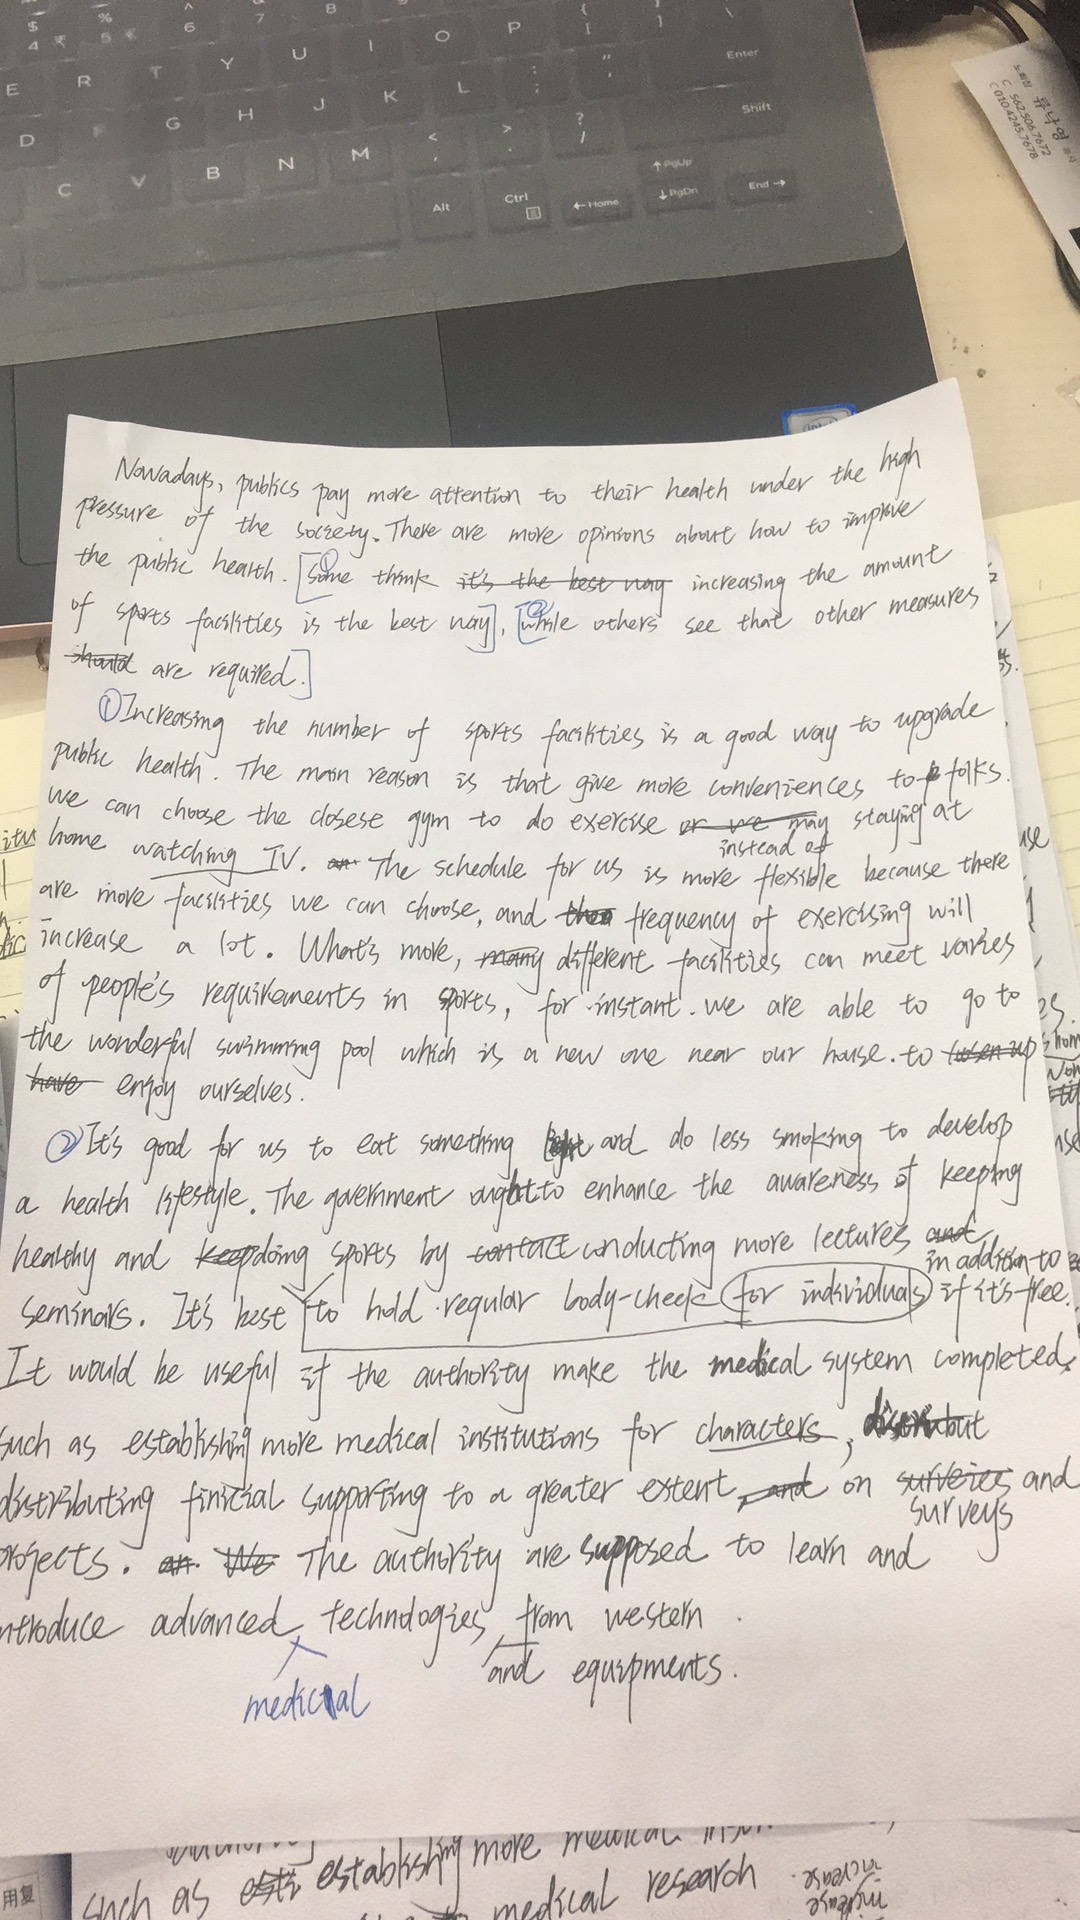 $ % ^ & 8
4 ₹ 5 € 6 7
E R T Y U I O P { [ } ] \
Enter
D F G H J K L : ; " '
Shift
C V B N M < , > . ? /
↑ PgUp
Alt Ctrl ← Home ↓ PgDn End →
류낙영
C 562.506.7672
C 010.4245.7678
intel
Nowadays, publics pay more attention to their health under the high
pressure of the society. There are more opinions about how to improve
the public health. [① Some think it's the best way increasing the amount
of sports facilities is the best way], [② while others see that other measures
should are required.]
① Increasing the number of sports facilities is a good way to upgrade
public health. The main reason is that give more conveniences to folks.
we can choose the closese gym to do exercise or we may staying at
instead of
home watching TV. an The schedule for us is more flexible because there
are more facilities we can choose, and then frequency of exercising will
increase a lot. What's more, many different facilities can meet varies
of people's requirements in sports, for instant. we are able to go to
the wonderful swimming pool which is a new one near our house. to
have enjoy ourselves.
② It's good for us to eat something light and do less smoking to develop
a health lifestyle. The government ought to enhance the awareness of keeping
healthy and keep doing sports by contact conducting more lectures and
in addition to
seminars. It's best to hold regular body-check for individuals if it's free.
It would be useful if the authority make the medical system completed,
such as establishing more medical institutions for characters, distribut
distributing finicial supporting to a greater extent, and on surveies and
surveys
projects. an We The authority are supposed to learn and
introduce advanced technologies from western.
medical
and equipments.
such as esti establishing more medical
medical research
increase
increase
用复